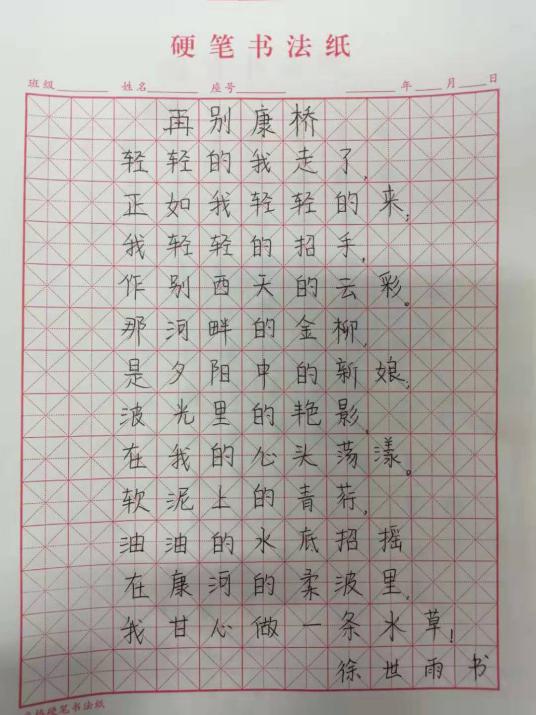 硬笔书法纸
班级 姓名 座号 年 月 日
再别康桥
轻轻的我走了,
正如我轻轻的来;
我轻轻的招手,
作别西天的云彩。
那河畔的金柳,
是夕阳中的新娘;
波光里的艳影,
在我的心头荡漾。
软泥上的青荇,
油油的水底招摇
在康河的柔波里,
我甘心做一条水草!
徐世雨书
硬笔书法纸